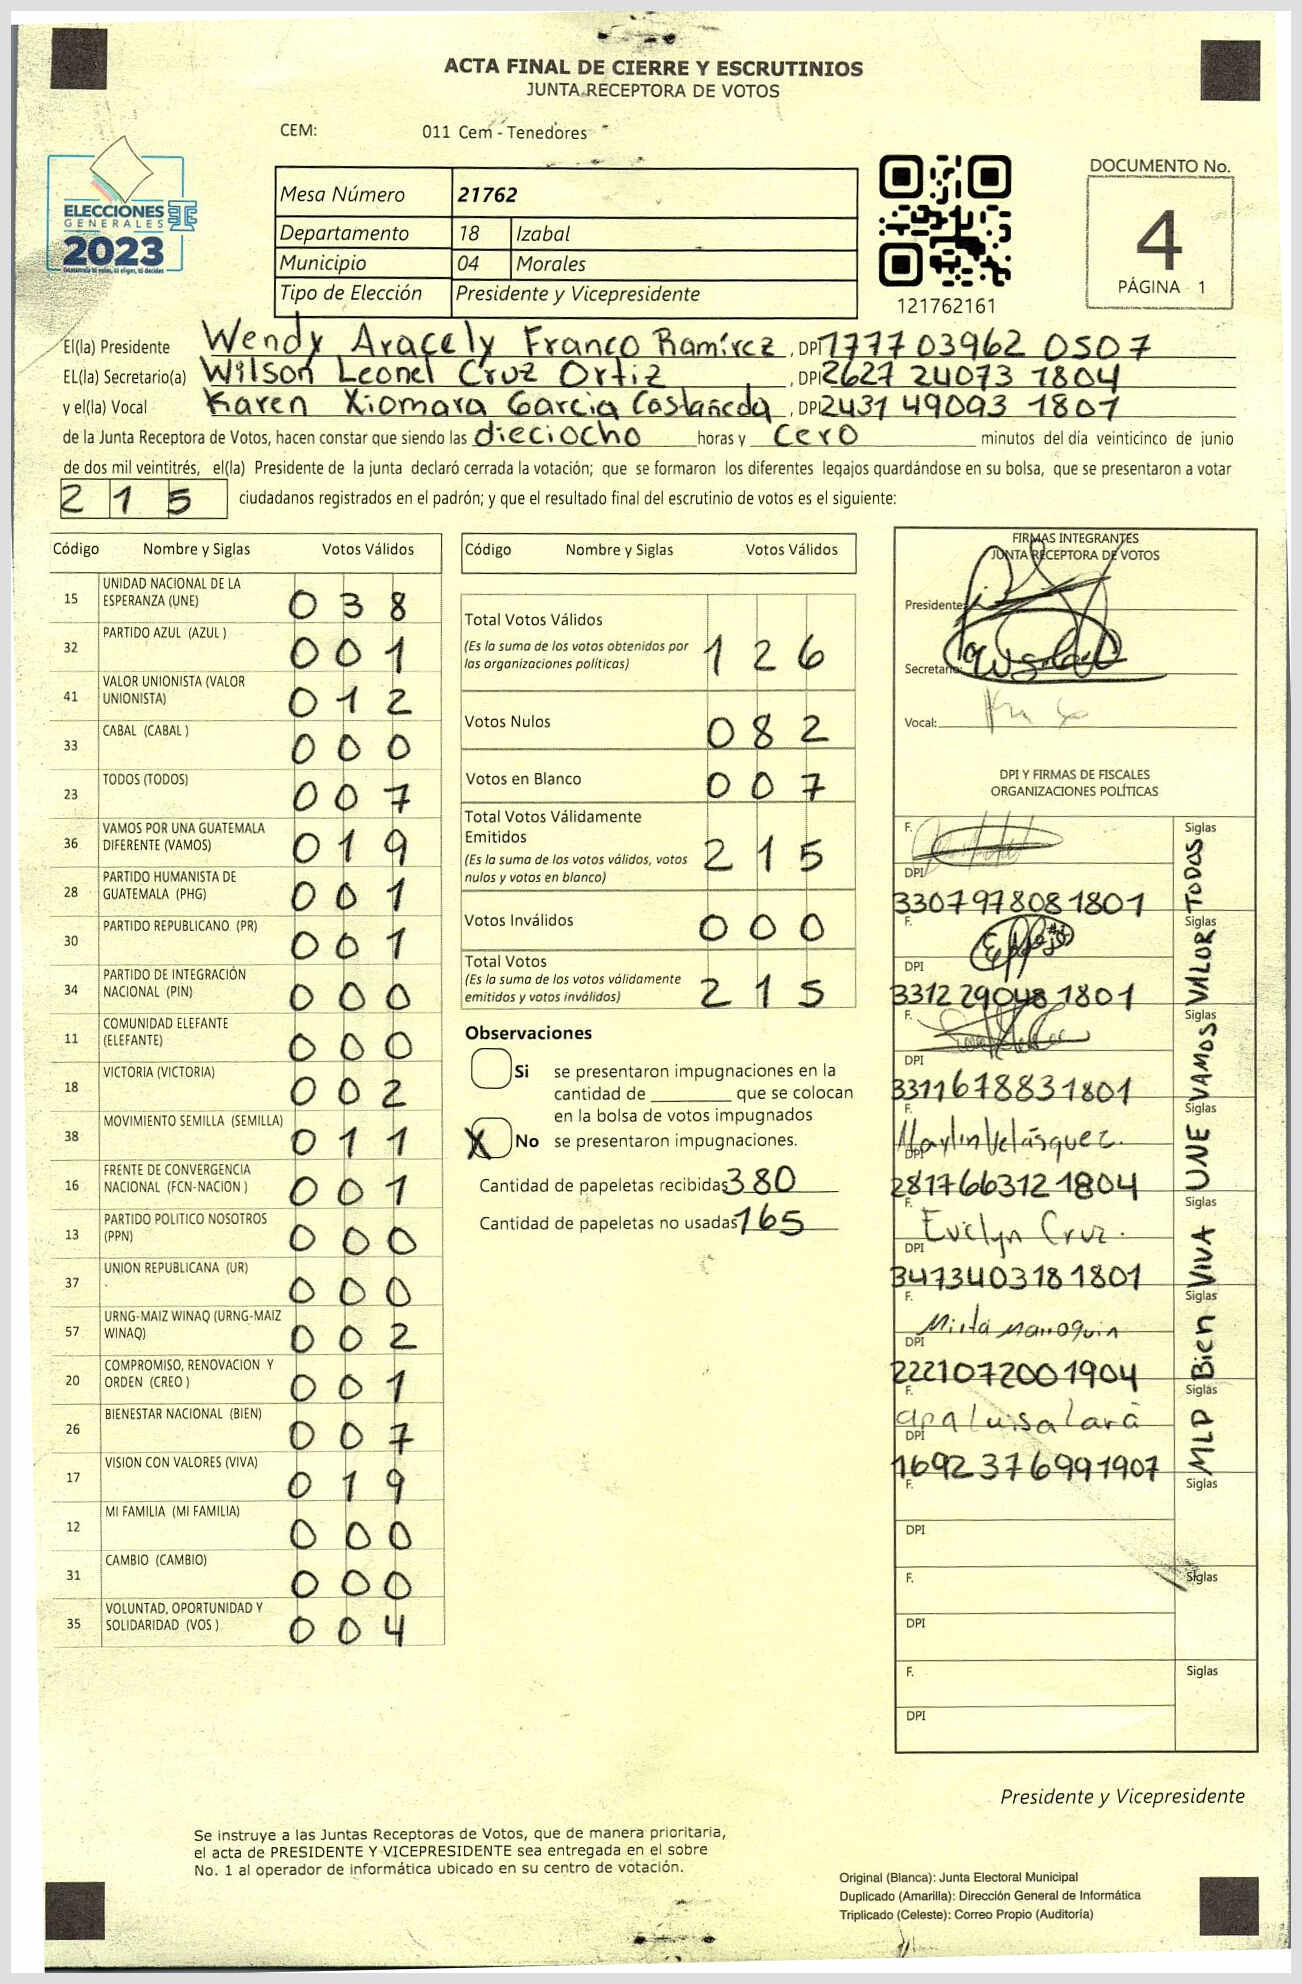 ACTA FINAL DE CIERRE Y ESCRUTINIOS
JUNTA RECEPTORA DE VOTOS
CEM: 011 Cem - Tenedores
ELECCIONES
GENERALES
2023
Mesa Número 21762
Departamento 18 Izabal
Municipio 04 Morales
Tipo de Elección Presidente y Vicepresidente
121762161
DOCUMENTO No.
4
PÁGINA 1
El(la) Presidente Wendy Aracely Franco Ramírez, DPI 1777 03962 0507
EL(la) Secretario(a) Wilson Leonel Cruz Ortiz, DPI 2627 24073 1804
y el(la) Vocal Karen Xiomara Garcia Castañeda, DPI 2431 49093 1801
de la Junta Receptora de Votos, hacen constar que siendo las dieciocho horas y cero minutos del día veinticinco de junio
de dos mil veintitrés, el(la) Presidente de la junta declaró cerrada la votación; que se formaron los diferentes legajos guardándose en su bolsa, que se presentaron a votar
215 ciudadanos registrados en el padrón; y que el resultado final del escrutinio de votos es el siguiente:
Código Nombre y Siglas Votos Válidos
15 UNIDAD NACIONAL DE LA ESPERANZA (UNE) 038
32 PARTIDO AZUL (AZUL ) 001
41 VALOR UNIONISTA (VALOR UNIONISTA) 012
33 CABAL (CABAL ) 000
23 TODOS (TODOS) 007
36 VAMOS POR UNA GUATEMALA DIFERENTE (VAMOS) 019
28 PARTIDO HUMANISTA DE GUATEMALA (PHG) 001
30 PARTIDO REPUBLICANO (PR) 001
34 PARTIDO DE INTEGRACIÓN NACIONAL (PIN) 000
11 COMUNIDAD ELEFANTE (ELEFANTE) 000
18 VICTORIA (VICTORIA) 002
38 MOVIMIENTO SEMILLA (SEMILLA) 011
16 FRENTE DE CONVERGENCIA NACIONAL (FCN-NACION ) 001
13 PARTIDO POLITICO NOSOTROS (PPN) 000
37 UNION REPUBLICANA (UR) 000
57 URNG-MAIZ WINAQ (URNG-MAIZ WINAQ) 002
20 COMPROMISO, RENOVACION Y ORDEN (CREO ) 001
26 BIENESTAR NACIONAL (BIEN) 007
17 VISION CON VALORES (VIVA) 019
12 MI FAMILIA (MI FAMILIA) 000
31 CAMBIO (CAMBIO) 000
35 VOLUNTAD, OPORTUNIDAD Y SOLIDARIDAD (VOS ) 004
Código Nombre y Siglas Votos Válidos
Total Votos Válidos
(Es la suma de los votos obtenidos por las organizaciones políticas) 126
Votos Nulos 082
Votos en Blanco 007
Total Votos Válidamente Emitidos
(Es la suma de los votos válidos, votos nulos y votos en blanco) 215
Votos Inválidos 000
Total Votos
(Es la suma de los votos válidamente emitidos y votos inválidos) 215
Observaciones
Si se presentaron impugnaciones en la
cantidad de ________ que se colocan
en la bolsa de votos impugnados
X No se presentaron impugnaciones.
Cantidad de papeletas recibidas 380
Cantidad de papeletas no usadas 165
FIRMAS INTEGRANTES
JUNTA RECEPTORA DE VOTOS
Presidente:
Secretario:
Vocal:
DPI Y FIRMAS DE FISCALES
ORGANIZACIONES POLÍTICAS
F. Siglas TODOS
DPI 3307978081801
F. Siglas VALOR
DPI 3312290481801
F. Siglas VAMOS
DPI 3311678831801
F. Marlin Velásquez. Siglas UNE
DPI 2817663121804
F. Evelyn Cruz. Siglas VIVA
DPI 3473403181801
F. Mirta Marroquin Siglas Bien
DPI 2221072001904
F. ana luisa lara Siglas MLP
DPI 1692376991907
F. Siglas
DPI
F. Siglas
DPI
F. Siglas
DPI
Presidente y Vicepresidente
Se instruye a las Juntas Receptoras de Votos, que de manera prioritaria,
el acta de PRESIDENTE Y VICEPRESIDENTE sea entregada en el sobre
No. 1 al operador de informática ubicado en su centro de votación.
Original (Blanca): Junta Electoral Municipal
Duplicado (Amarilla): Dirección General de Informática
Triplicado (Celeste): Correo Propio (Auditoría)